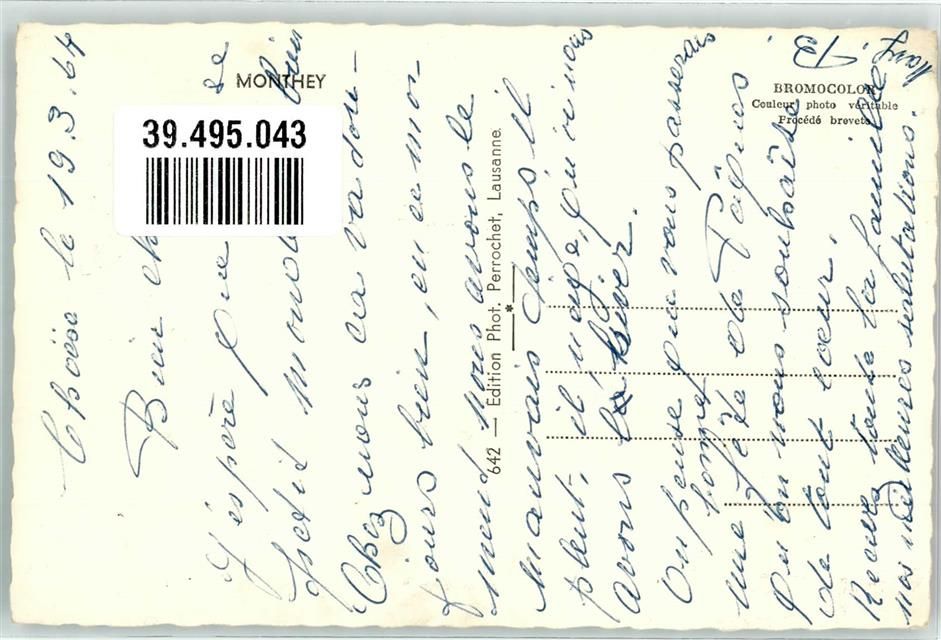 MONTHEY
39.495.043
BROMOCOLOR
Couleur photo véritable
Procédé breveté
642 — Edition Phot. Perrochet, Lausanne.
Choëx le 19.3.64
Bien ch
J'espère que
petit monde bien
Chez nous ca va tou-
jours bien, en ce mo-
ment nous avons le
mauvais temps il
pleut, il neige, qu'oi nous
avons l'hiver.
On pense que vous passerais
une fête de Pâques
Qu'on vous souhaite
de tout coeur.
Recevez toute la famille
nos meilleures salutations.